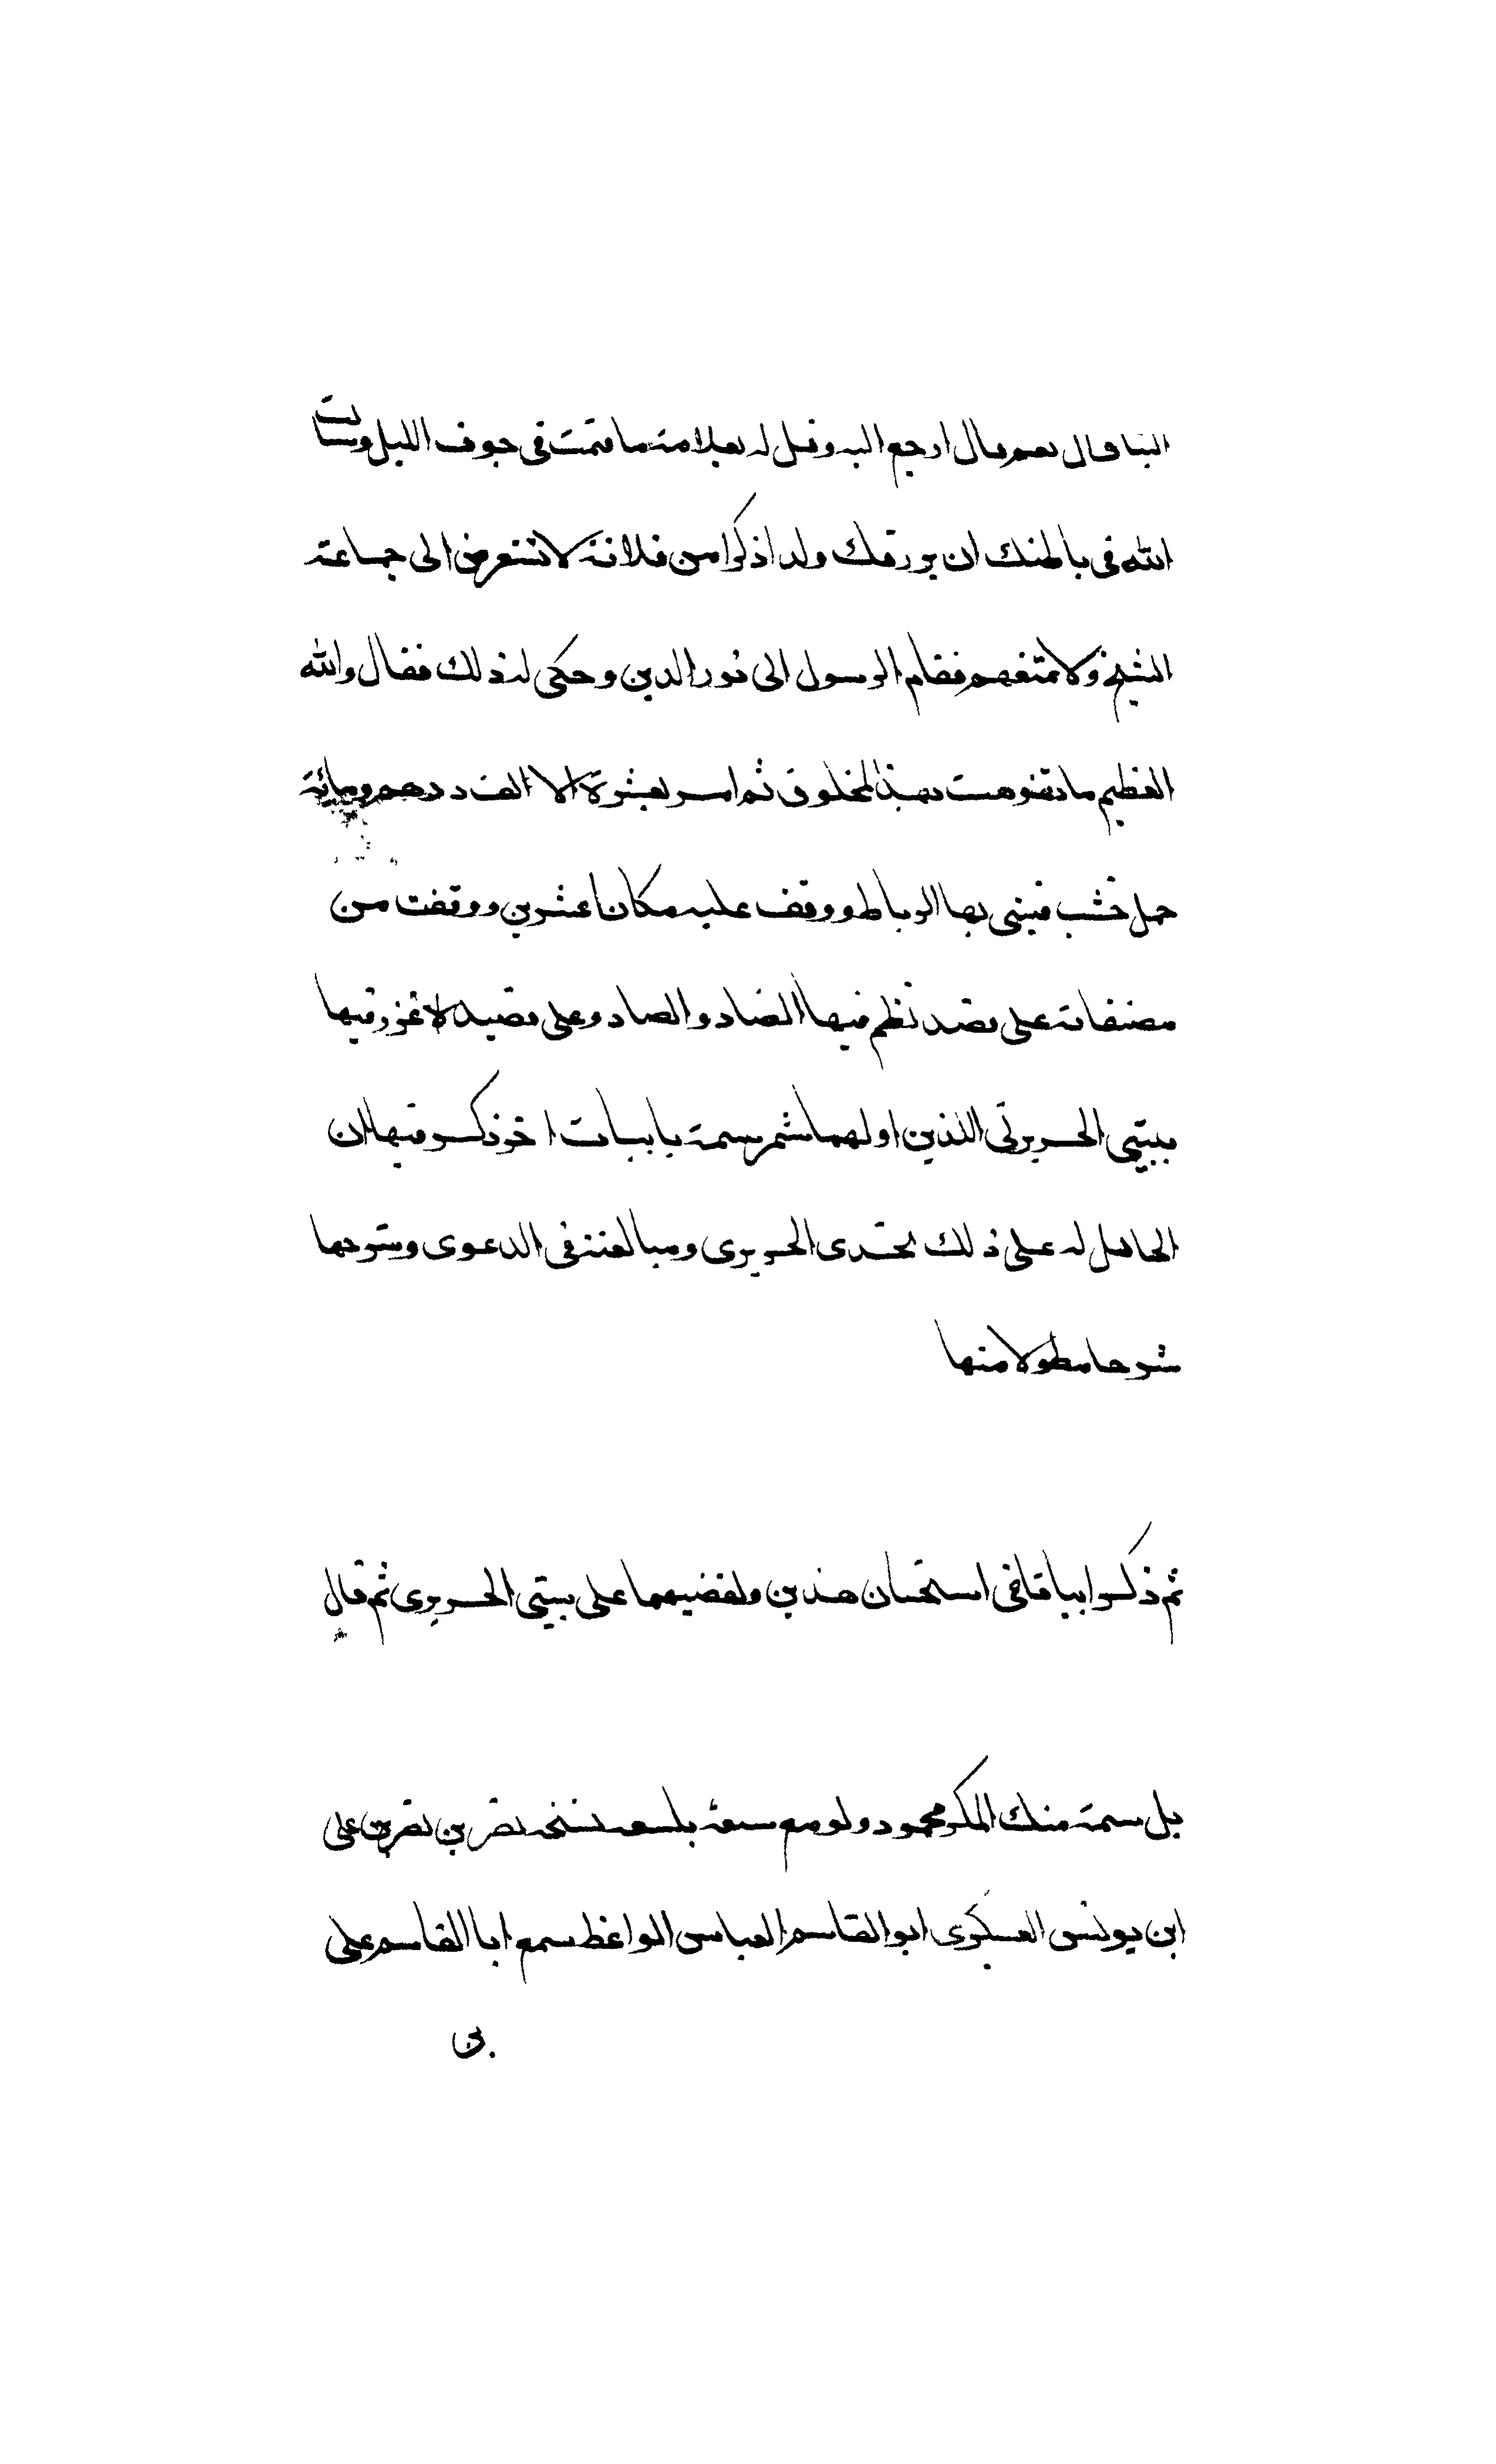 الينا قال نعم قال ارجع اليه وقل له بعلامة ما قمت في جوف الليل وسالت
الله في باطنك ان يرزقك ولدا ذكرا من فلانة لا تتعرض الى جماعة
الشيخ ولا تمقتهم فقام الرسول الى نور الدين وحكى له ذلك فقال والله
العظيم ما تفوهت بهذا لمخلوق ثم امر بعشرة الا الف درهم ومائة
حمل خشب فبنى بها الرباط ووقف عليه مكانا عشرين ووقفت من
مصنفاته على نظم فيها الضاد والصاد وعلى فيها
ببيتي الحريري الذين اولهما سم سمة بابيات اخر ذكر فيها ان
الحامل له على ذلك تحدي الحريري ومبالغته في الدعوى وشرحها
شرحا مطولا منها
ثم ذكر ابياتا في استحسان هذين على بيتي الحريري ثم قال
بل سمة منك محمود ولو مع نصر بن نصر بن علي
ابن يونس العسكري ابو القاسم العباس الواعظ سمع ابا القاسم علي
بن